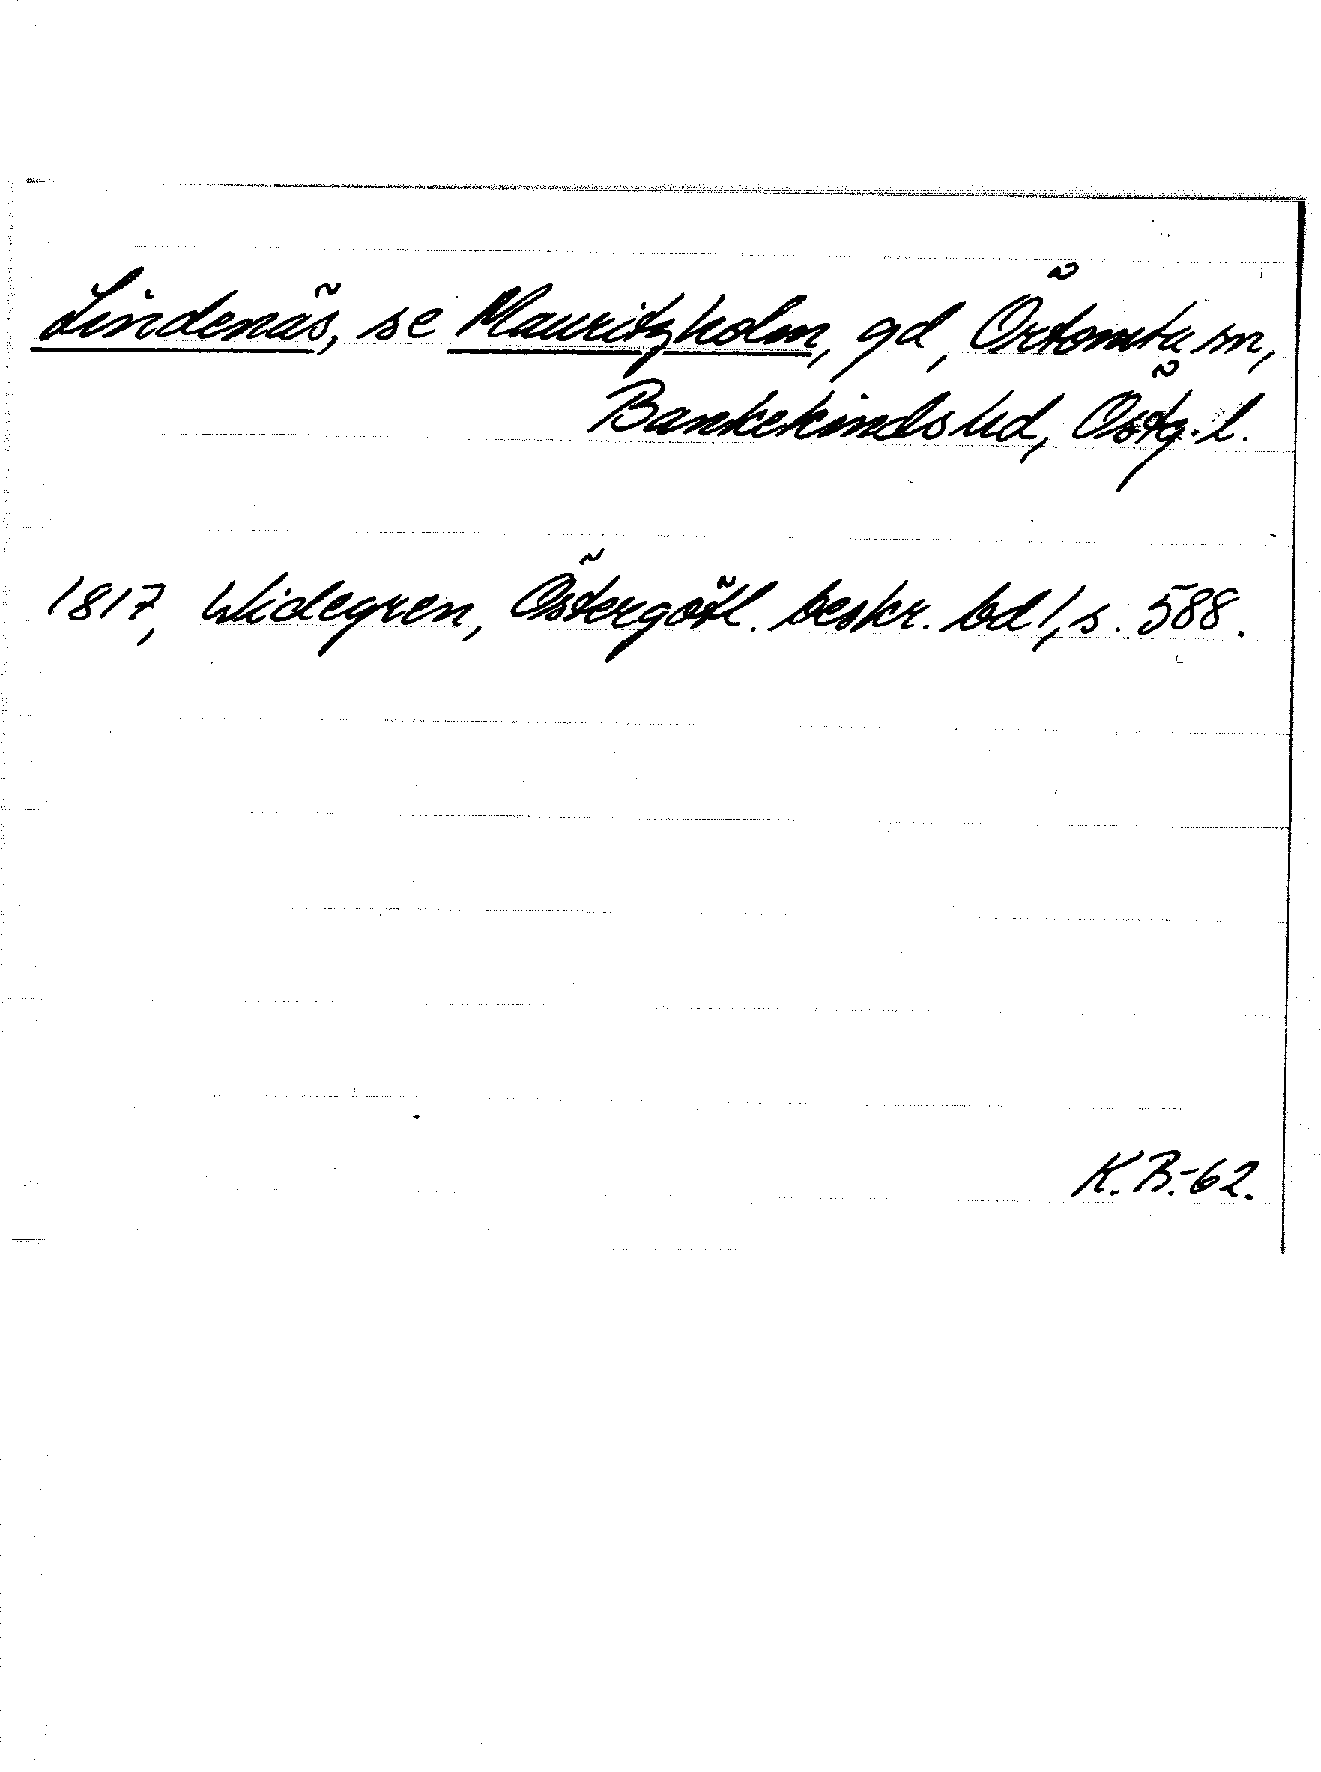 Lindenäs, se Mauritzholm, gd, Örtomta sn,
Bankekinds hd, Östg. l.
1817, Widegren, Östergötl. beskr. bd 1, s. 588.
K.B.-62.